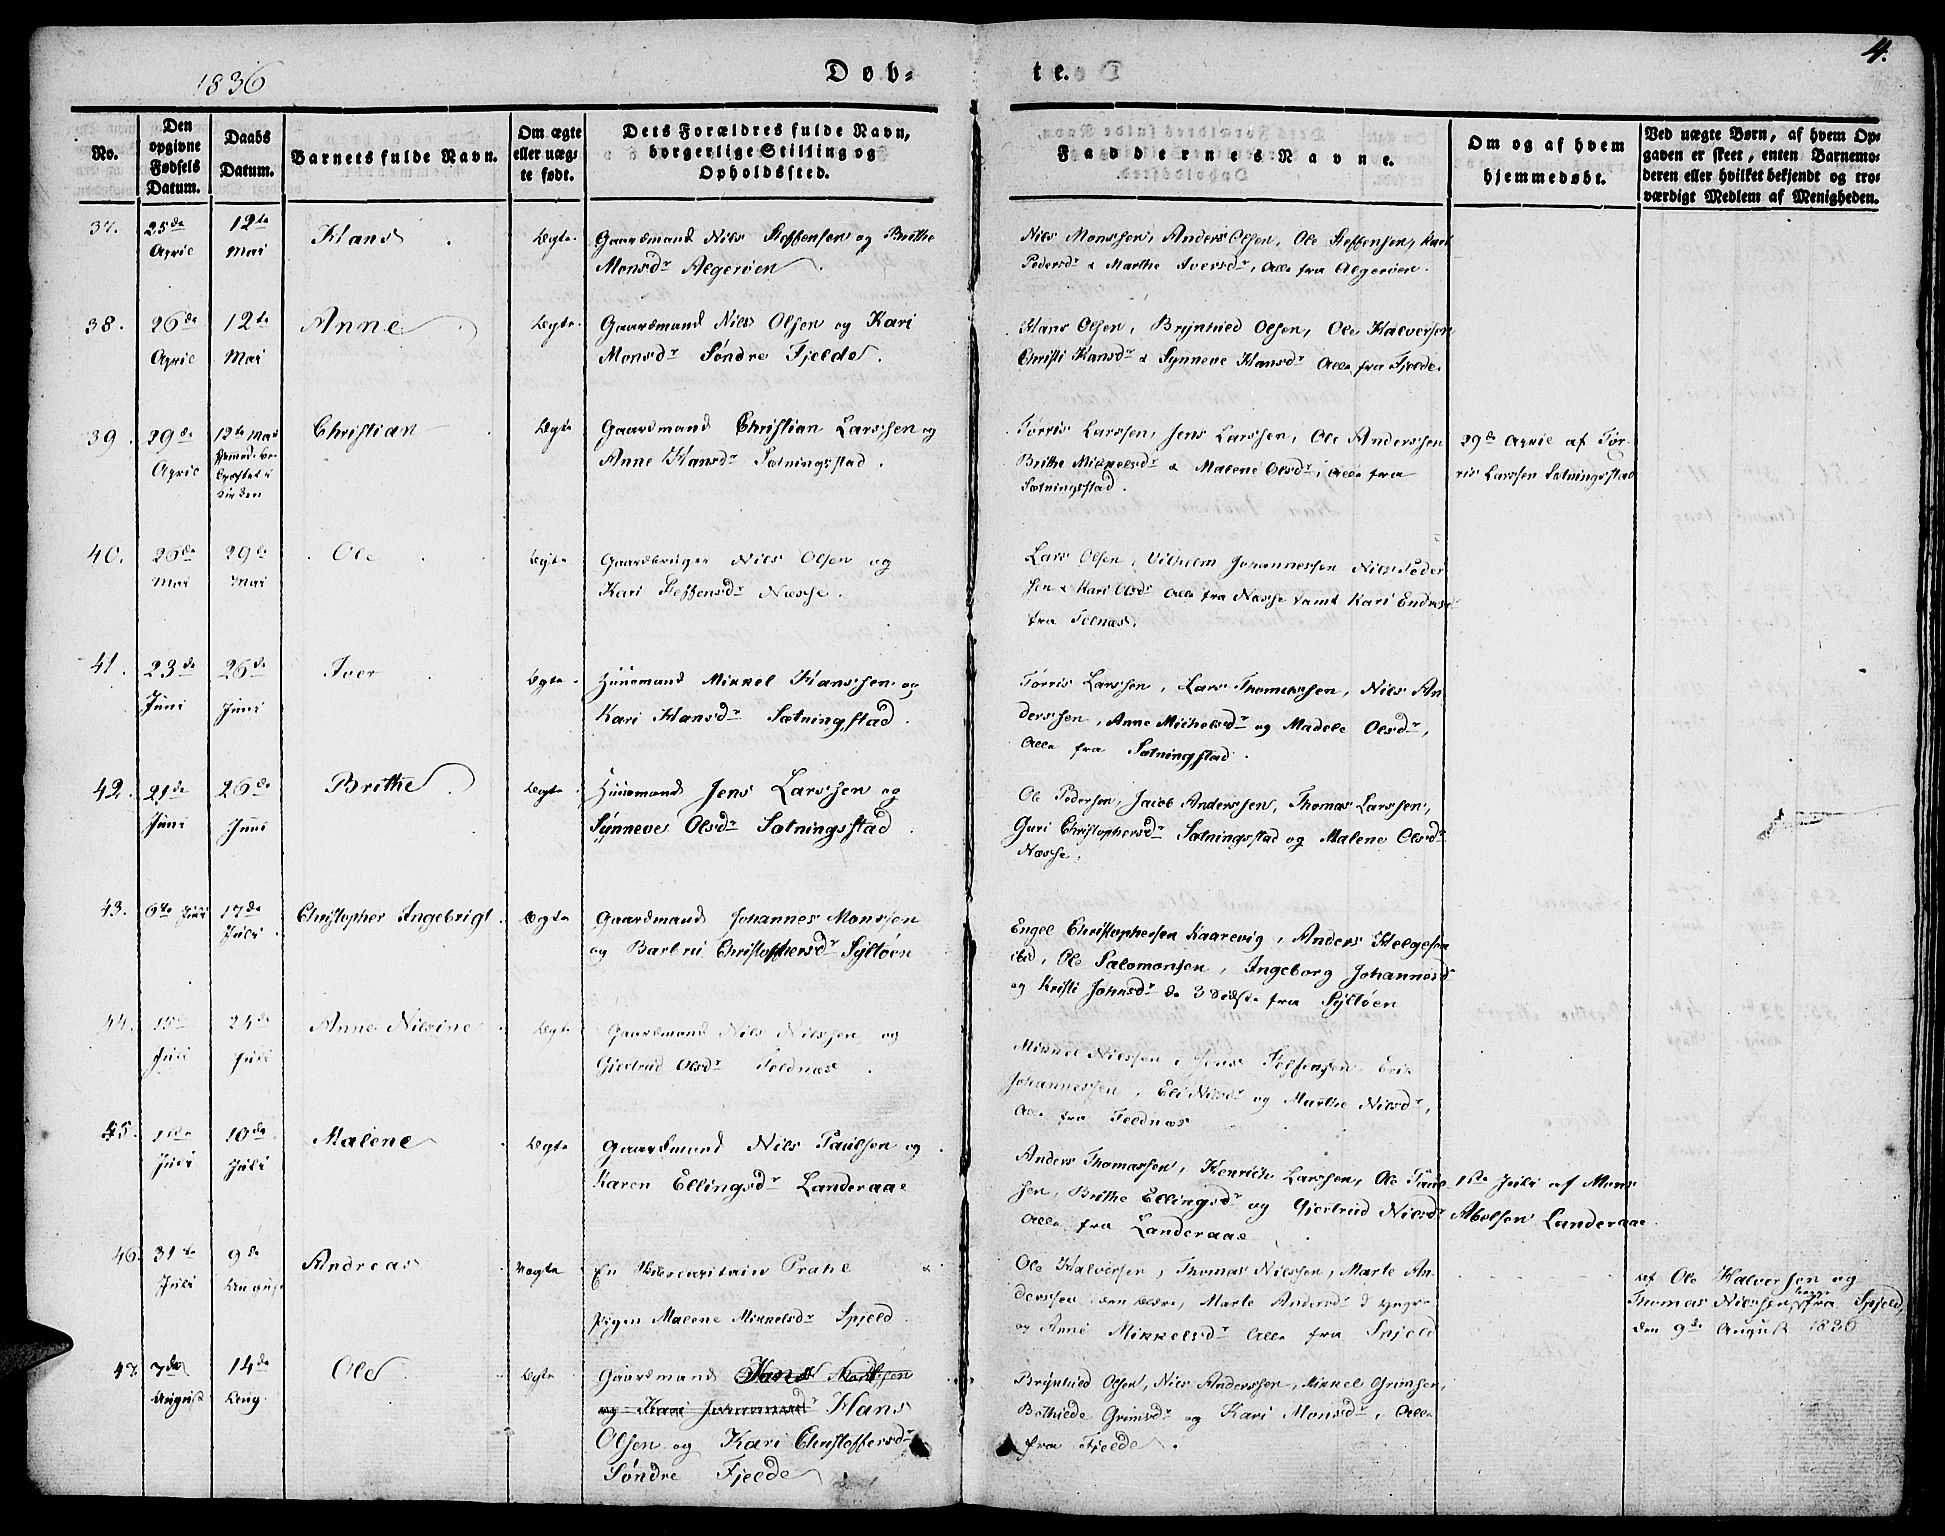 1836
Døb-
te.
4.
No.
Den opgivne Fødsels Datum.
Daabs Datum.
Barnets fulde Navn.
Om ægte eller uæg- te født.
Dets Forældres fulde Navn, borgerlige Stilling og Opholdssted.
Faddernes Navne.
Om og af hvem hjemmedøbt.
Ved uægte Børn, af hvem Op- gaven er skeet, enten Barnemo- deren eller hvilket bekjendt og tro- værdigt Medlem af Menigheden.
37. 25de April
12te Mai
Hans
Ægte
Gaardmand Nils Steffensen og Brithe
Monsdr Algerøen
Nils Monssen, Anders Olsen, Ole Steffensen, Kari
Pedersdr & Marthe Iversdr, Alle fra Algerøen.
38. 26de April
12te Mai
Anne
Ægte
Gaardmand Nils Olsen og Kari
Monsdr Søndre Fjelde.
Hans Olsen, Brÿnhild Olsen, Ole Halversen
Christi Hansdr & Synneve Hansdr Alle fra Fjelde.
39. 29de April
12te Mai
Christian
Ægte
Gaardmand Christian Larssen og
Anne Hansdr Sætningsstad.
Tørris Larssen, Jens Larssen, Ole Anderssen
Brithe Mikkelsdr & Malene Olsdr, Alle fra
Sætningsstad.
29de April af Tør-
ris Larssen Sætningsstad
40. 26de Mai
29de Mai
Ole
Ægte
Gaardbruger Nils Olsen og
Kari Steffensdr Næsse.
Lars Olsen, Vilhelm Johannessen Nils Peder
sen & Kari Olsdr Alle fra Næsse samt Kari Endresdr
fra Telnæs.
41. 23de Juni
26de Juni
Iver
Ægte
Huusmand Mikkel Hanssen og
Kari Hansdr Sætningstad.
Tørris Larssen, Lars Thomassen, Nils An-
derssen, Anne Michelsdr og Madele Olsdr,
Alle fra Sætningstad.
42. 21de Juni
26de Juni
Brithe
Ægte
Huusmand Jens Larssen og
Sÿnneve Olsdr Sætningsstad.
Ole Pedersen, Jacob Anderssen, Thomas Larssen,
Guri Christophersdr Sætningsstad og Malene Olsdr
Næsse.
43. 6te Juli
17de Juli
Christopher Ingebrigt
Ægte
Gaardmand Johannes Monssen
og Barbru Christophersdr Syltøen
Engel Christophersen Kaarevig, Anders Helgesen
ibid, Ole Salomonsen, Ingeborg Johannesdr
og Kristi Johnsdr de 3 sidste fra Syltøen
44. Juli
24de Juli
Anne Nilsine
Ægte
Gaardmand Nils Nilssen og
Giertrud Olsdr Teldnæs.
Mikkel Nilssen, Jens Steffensen, Erik
Johannessen, Eli Nilsdr og Marthe Nilsdr,
Alle fra Teldnæs
45. 1ste Juli
10de Juli
Malene
Ægte
Gaardmand Nils Paulsen og
Karen Ellingsdr Landeraae
Anders Thomassen, Henrich Larssen, Ole Paul-
sen, Brithe Ellingsdr og Giertrud Nilsdr
Alle fra Landeraae
1ste Juli af Mons
Abelsen Landeraae.
46. 31te Juli
9de August
Andreas
Uægte
En Prahe &
Pigen Malene Mikkelsdr Spjeld.
Ole Halversen, Thomas Nilssen, Marte An-
dersdr den ældre, Marte Andersdr d yngre
og Anne Mikkelsdr Alle fra Spjeld
Af Ole Halversen og
Thomas Nilssen fra Spjeld
den 9de August 1836
47. 7de August
14de Aug.
Ole
Ægte
Gaardmand Hans
og Kari Hans
Olsen og Kari Christoffersdr
Søndre Fjelde
Brÿnhild Olsen, Nils Anderssen, Mikkel Grimsen,
Bothilde Grimsdr og Kari Monsdr, Alle
fra Fjelde.